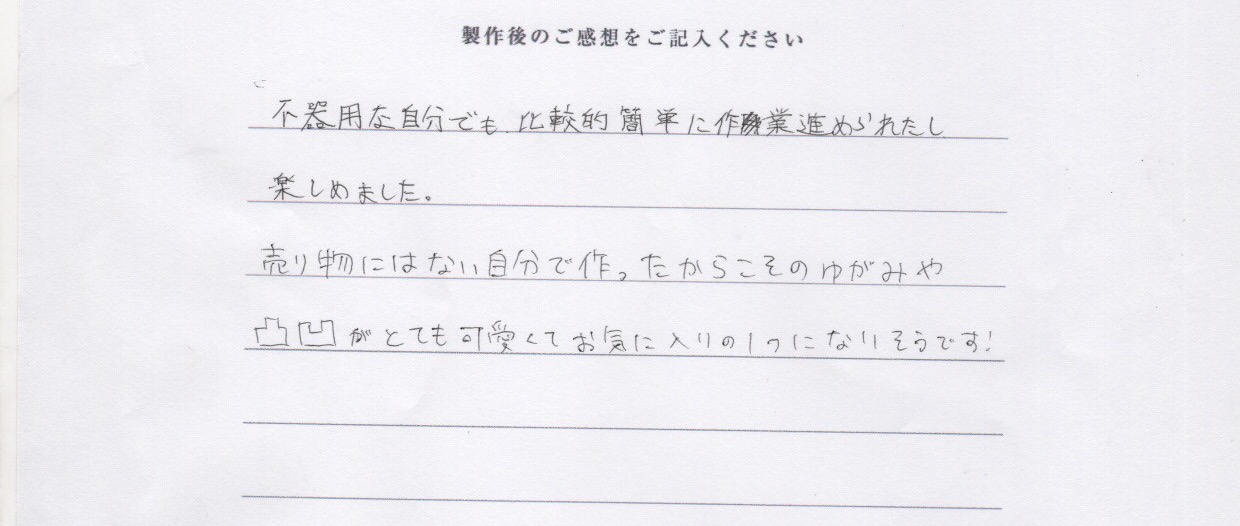 製作後のご感想をご記入ください
不器用な自分でも、比較的簡単に作業進められたし
楽しめました。
売り物にはない自分で作ったからこそのゆがみや
凸凹がとても可愛くてお気に入りの1つになりそうです!